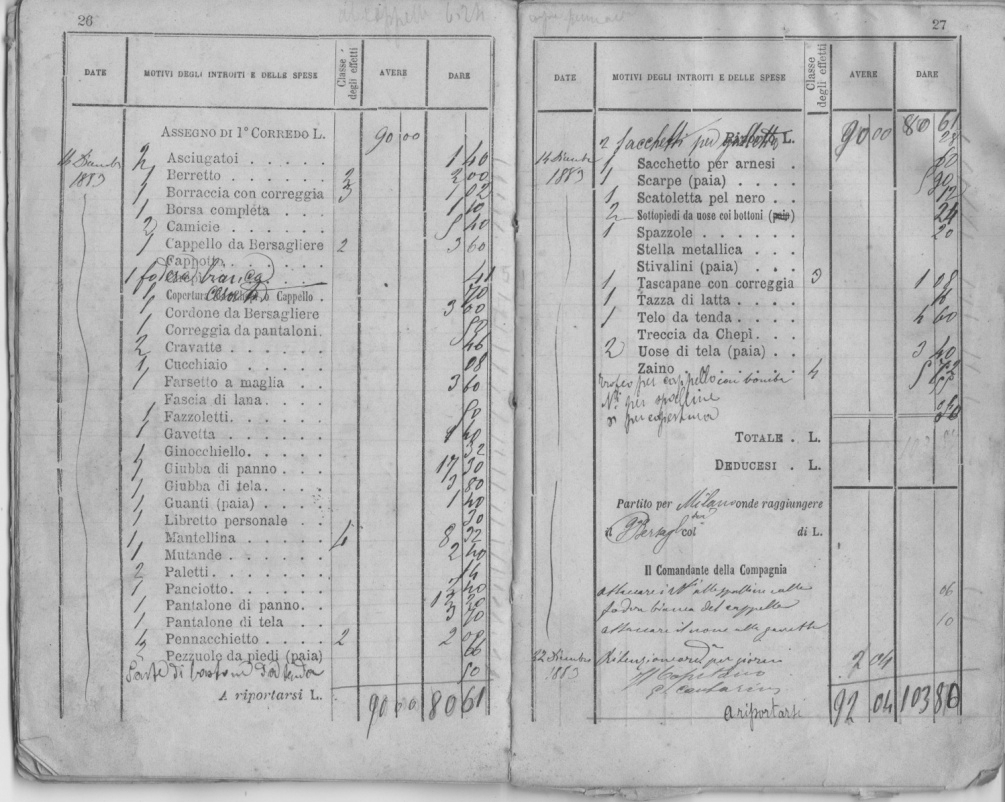 26
DATE MOTIVI DEGLI INTROITI E DELLE SPESE Classe degli effetti AVERE DARE
ASSEGNO DI 1º CORREDO L. 90 00
16 1883 2 Asciugatoi 1 40
1 Berretto 2 2 00
1 Borraccia con correggia 3 1 02
1 Borsa completa 1 10
2 Camicie 5 40
1 Cappello da Bersagliere 2 3 60
Cappotto
1 fodera bianca 41
1 Copertura Cappello 70
1 Cordone da Bersagliere 3 00
Correggia da pantaloni. 50
2 Cravatte 46
1 Cucchiaio 08
1 Farsetto a maglia 3 60
Fascia di lana
1 Fazzoletti 50
1 Gavetta 1 40
1 Ginocchiello 32
1 Giubba di panno 17 30
1 Giubba di tela 3 80
1 Guanti (paia) 1 40
1 Libretto personale 30
1 Mantellina 4 8 32
1 Mutande 2 40
2 Paletti 14
1 Panciotto 40
1 Pantalone di panno 13 30
1 Pantalone di tela 3 70
1 Pennacchietto 2 2 00
Pezzuole da piedi (paia) 66
di bastone da tenda 50
A riportarsi L. 90 00 80 61
27
DATE MOTIVI DEGLI INTROITI E DELLE SPESE Classe degli effetti AVERE DARE
Riporto L. 90 00 80 61
2 Sacchetti per
16 1883 1 Sacchetto per arnesi
1 Scarpe (paia)
1 Scatoletta pel nero
2 Sottopiedi da uose coi bottoni (paia) 24
1 Spazzole 20
Stella metallica
Stivalini (paia)
1 Tascapane con correggia 3 1 08
1 Tazza di latta 16
1 Telo da tenda 4 60
Treccia da Chepì
2 Uose di tela (paia) 3 40
Zaino 4
per cappello con bomba
Nº per spalline
per copertura
TOTALE . L.
DEDUCESI . L.
Partito per Milano onde raggiungere
il Bersagl col di L.
Il Comandante della Compagnia
attaccare i Nº alle spalline e alla 06
fodera bianca del cappello
attaccare il nome alla gavetta 10
22 Dicembre 1883 per giorni 2 04
Il Capitano
a riportarsi 92 04 103 80